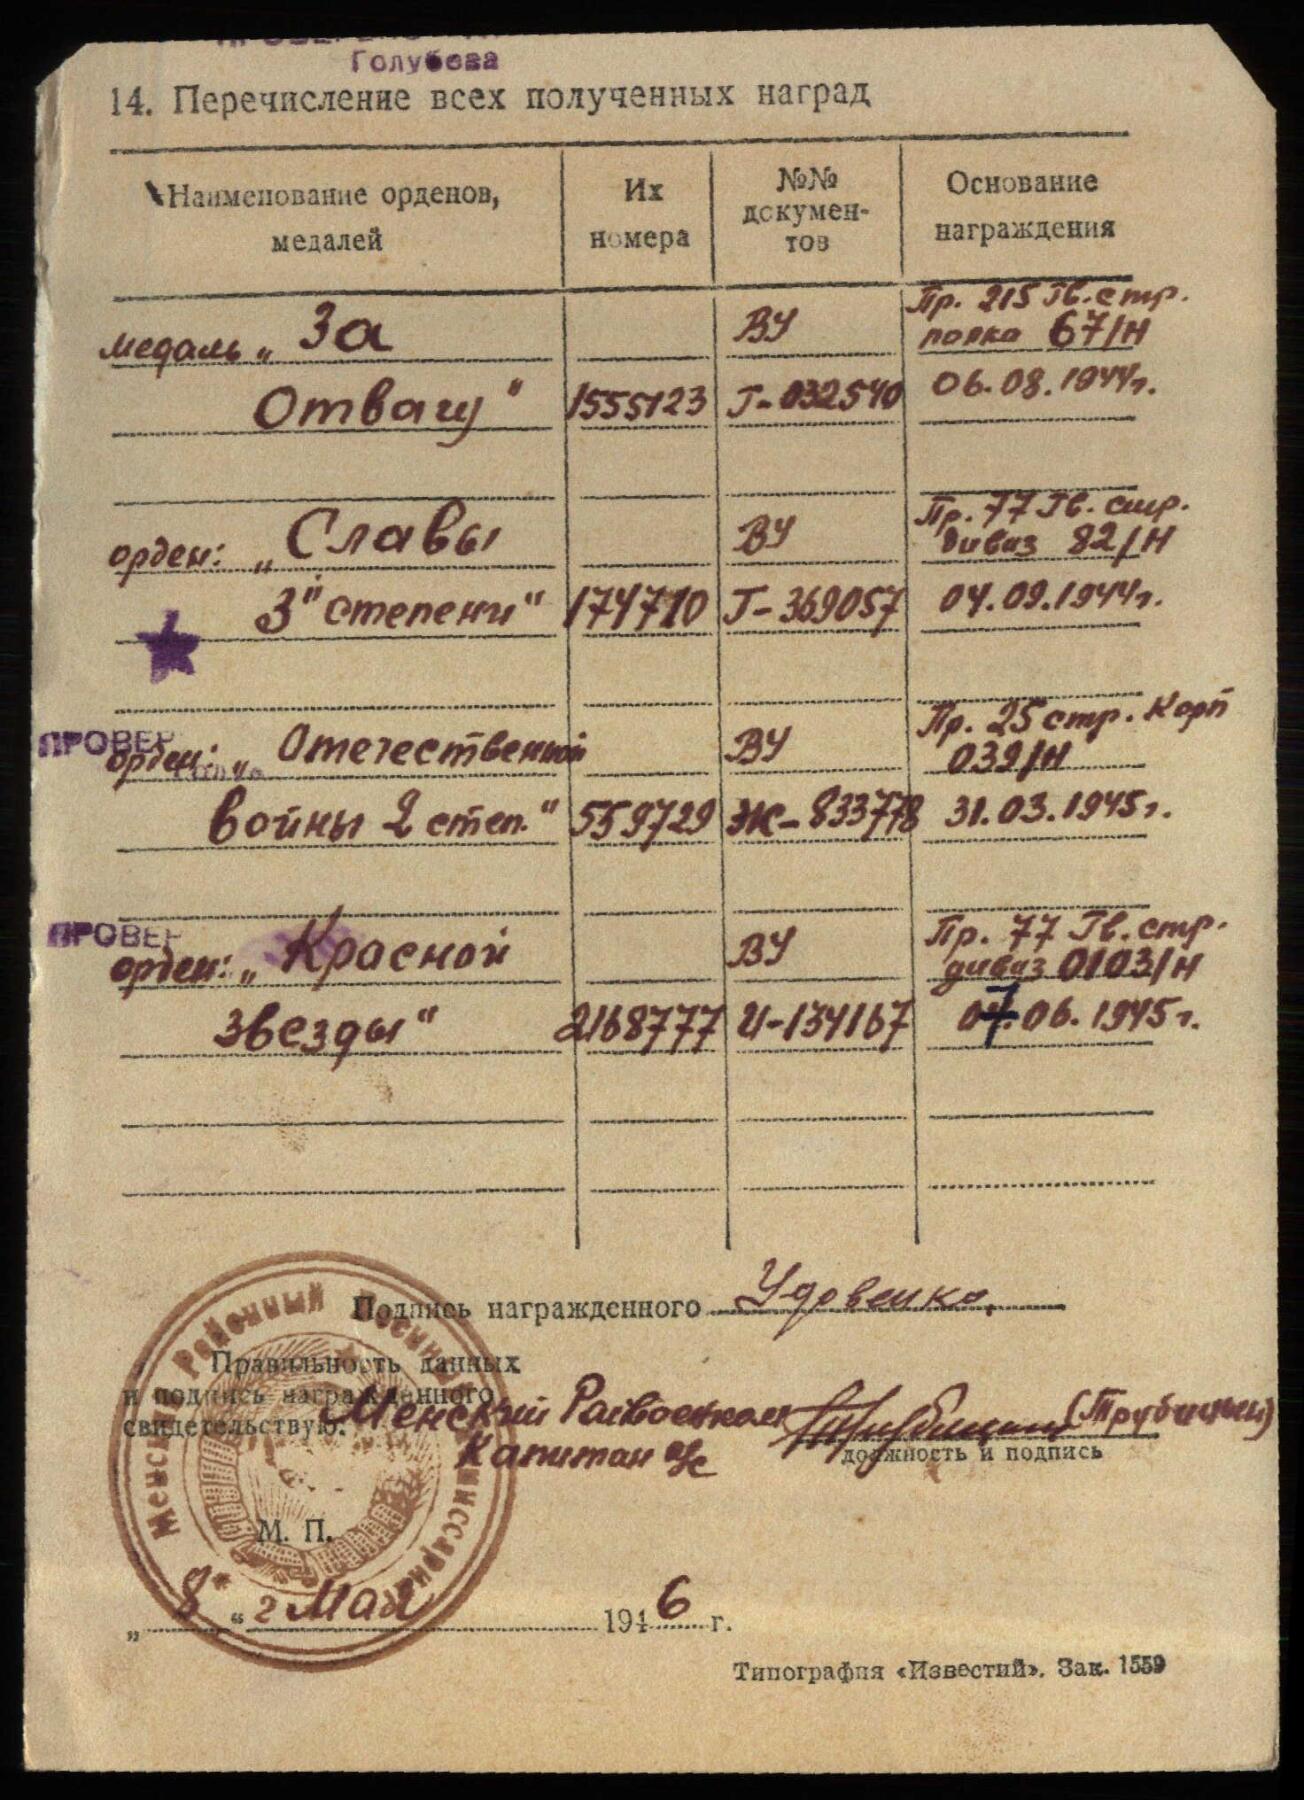 Голубева
14. Перечисление всех полученных наград
Наименование орденов, медалей
Их номера
№№ докумен-тов
Основание награждения
медаль „За Отвагу" 1555123 ВУ Г-032540 Пр. 215 Гв. стр. полка 67/Н 06.08.1944г.
орден: „Славы 3" степени" 174710 ВУ Г-369057 Пр. 77 Гв. стр. дивиз 82/Н 04.09.1944г.
ПРОВЕР
орден: „Отечественной войны 2 степ." 559729 ВУ Ж-833778 Пр. 25 стр. Корп 039/Н 31.03.1945г.
ПРОВЕР
орден: „Красной звезды" 2168777 ВУ И-134167 Пр. 77 Гв. стр. дивиз 0103/Н 07.06.1945г.
Подпись награжденного Удовенко
Правильность данных
и подпись награжденного
свидетельствую.
Менский Райвоенком (Трубицын)
Капитан
должность и подпись
Менский Районный
М. П.
„8" мая 1946 г.
Типография «Известий». Зак. 1559